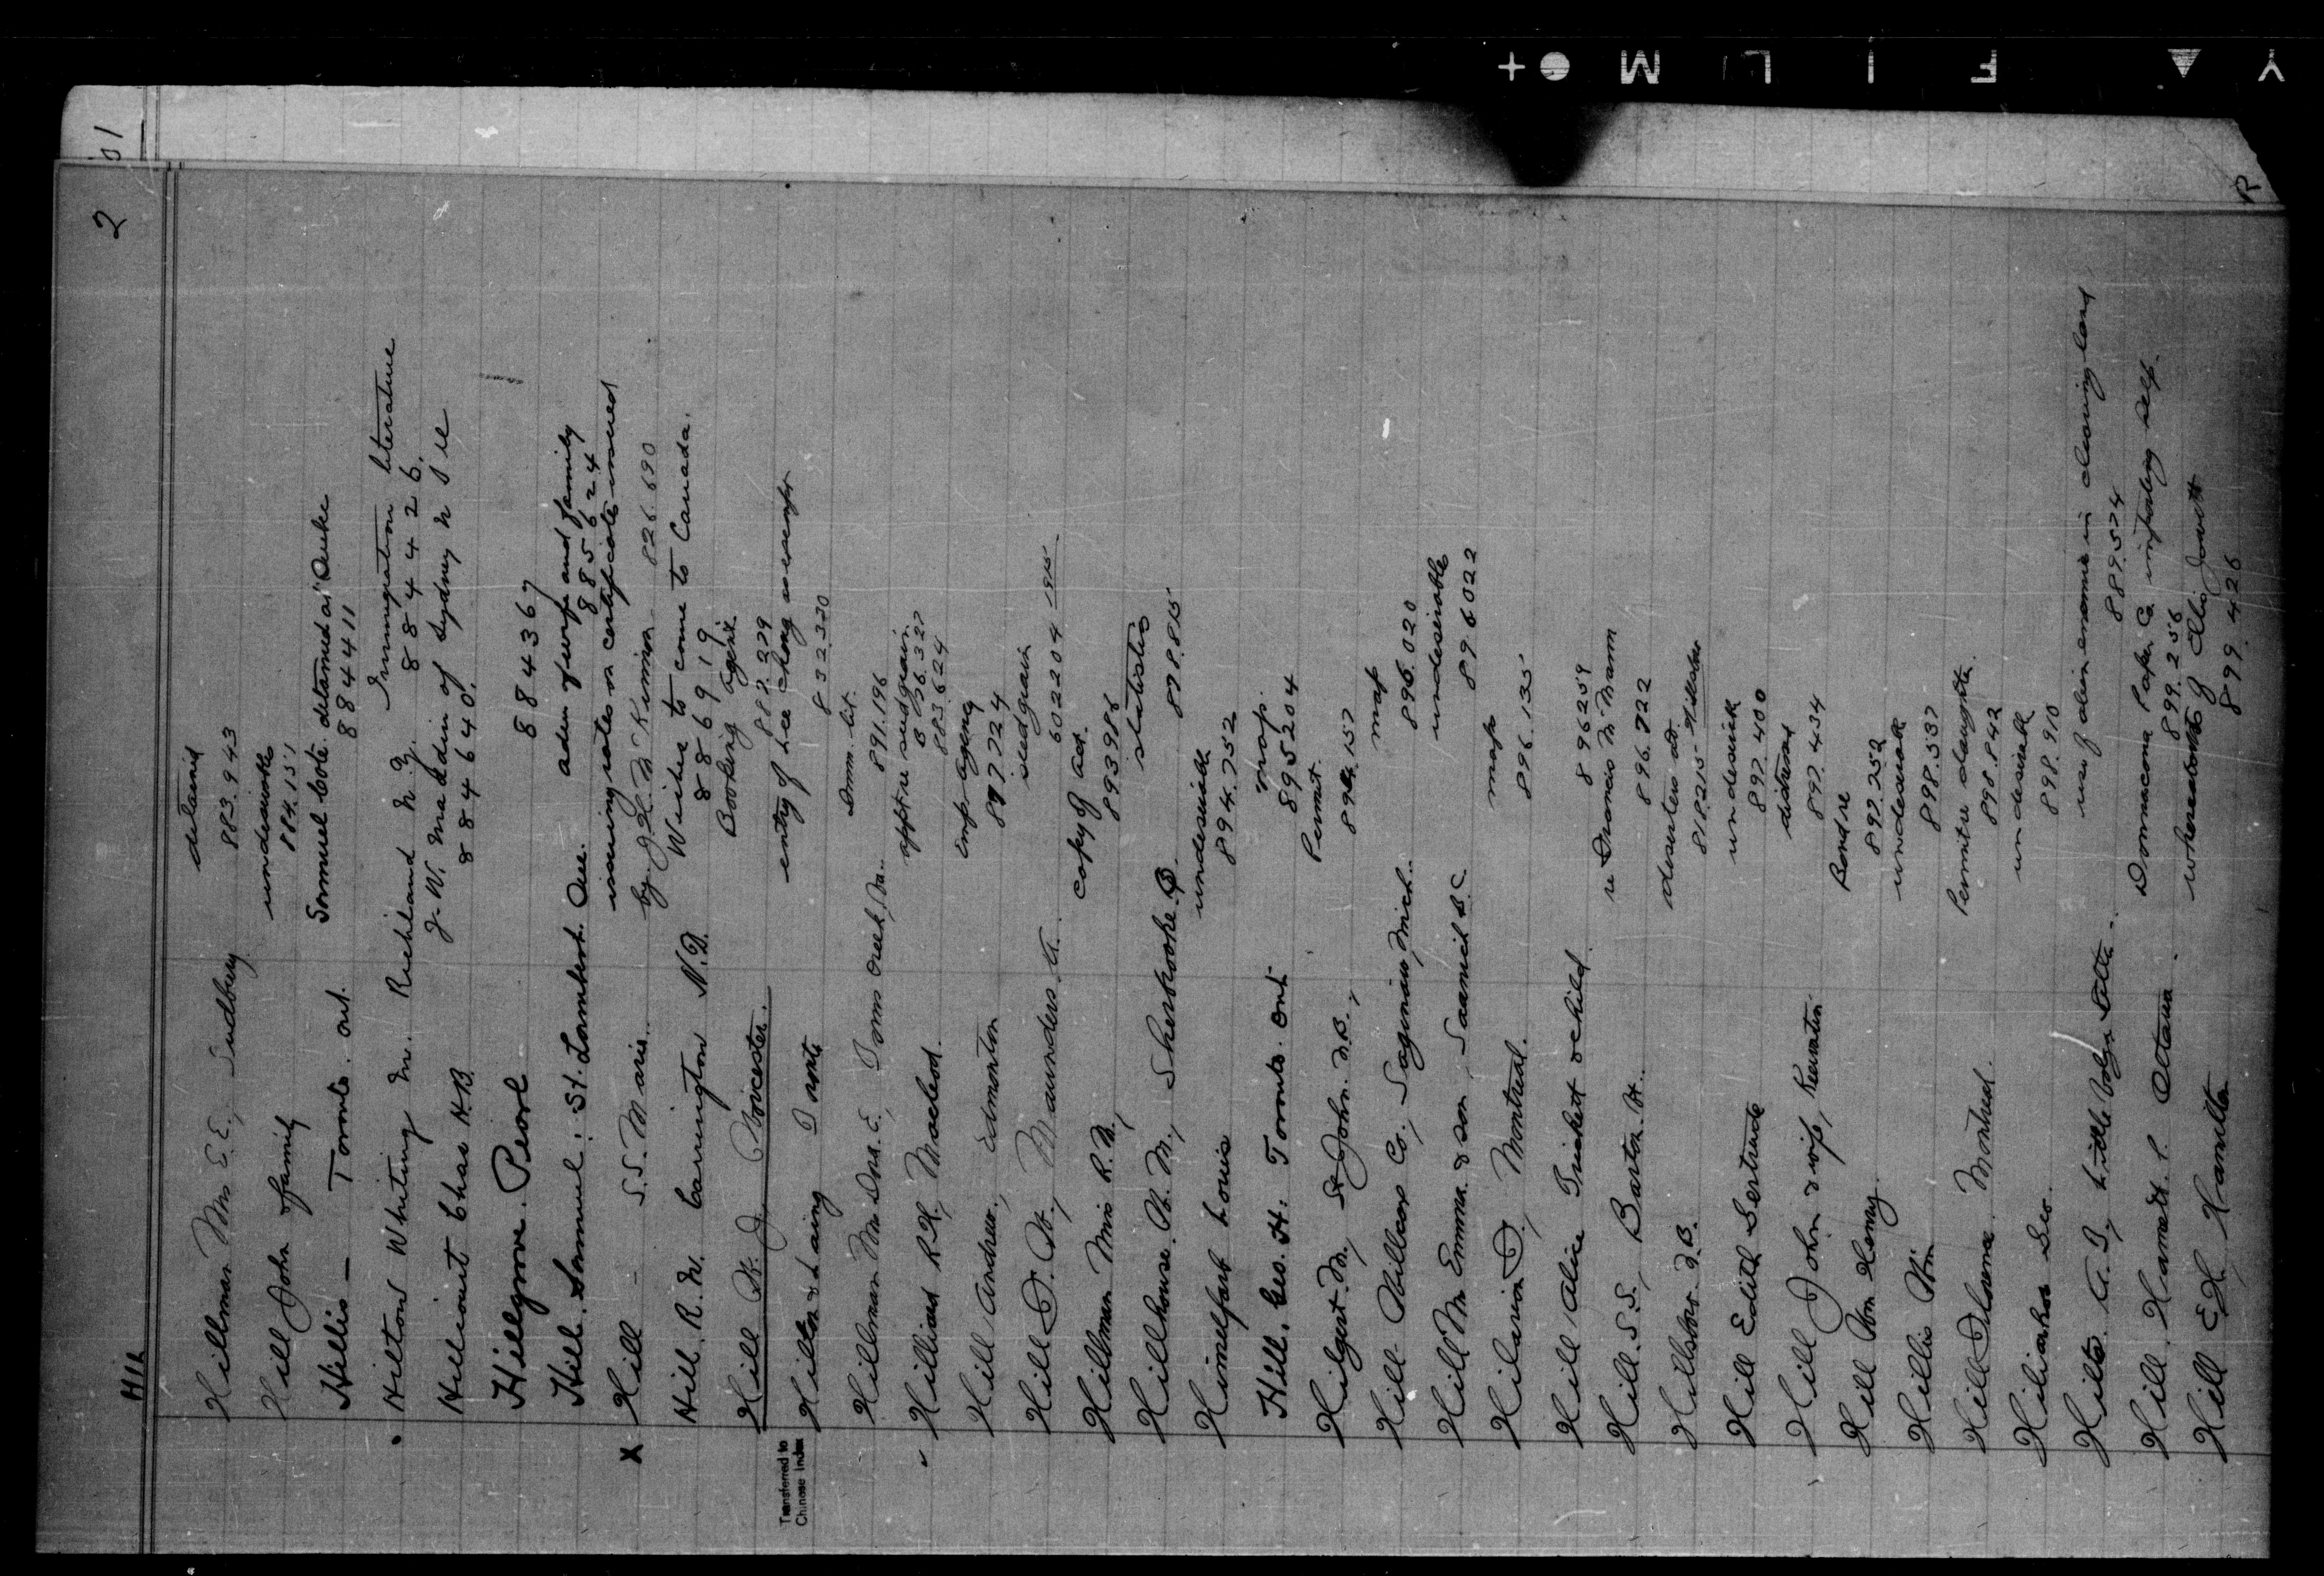 2
Hillman Mrs S.E., Sudbury
detained
883.943
Hill John & family
undesirable
884.151
Hillis — Toronto. Ont.
Samuel Cote detained as "Duke
884411
Hilton Whiting M. Richland N.Y.
Immigration literature
884426.
Hillicourt Chas N.B.
J. W. Maddin of Sydney N S re
884640.
Hillgrove. Pearl
884367
Hill. Samuel: St. Lambert. Que.
adm of wife and family
885624
X Hill — S.S. Marie.
issuing rates on certificate issued
by J.H. McKinnon 826.690
Hill. R. W. Carrington N.D.
Wishes to come to Canada.
886919
Hill W. J. Worcester.
Booking Agent
887.279
Transferred to
Chinese Index
Hilton & Laing
entry of Lee Chong as exempt
832330
Hillman Mr Dna. E., Toms Creek, Va.
Imm. lit.
891.196
Hilliard R.H., Macleod.
app re seed grain
876.327
883.624
Hill Andrew, Edmonton
emp agency
897724
Hill D. W., Maunders, A.
seed grain
602204 1915
Hillman Miss R.M.,
copy of act.
893986
Hillhouse. W. M., Sherbrooke. Q
statistics
878.815
Himmelfarb Louis
undesirable
894.752
Hill. Geo. H. Toronto. Ont
map.
895204
Hilgert. M., St John. N.B.,
Permit.
896.157
Hill Willcox Co., Saginaw, Mich.
map
896.020
Hill Mrs Emma & son, Saanich B.C.
undesirable
896022
Hilarion D., Montreal.
map
896.135
Hill Alice Trickett & child
896259
Hill. S.S., Barton. H.
re Francis McMann
896.722
Hillsboro. N.B.
deserters at
818215 Hillsboro
Hill Edith Gertrude
undesirable
897.400
Hill John & wife, Reservation
distressed
897.434
Hill Wm Henry.
Bond re
897.252
Hillis Wm
undesirable
898.537
Hill Philomene. Montreal.
Permit re daughter.
898.842
Hiliarhos Geo.
undesirable
898.910
Hilts. A. J,
use of alien enemies in clearing land
8895 74
Hill. Hamnet P. Ottawa.
Donnacona Paper Co. importing self.
899.256
Hill E.H. Hamilton
whereabouts of Elio Jowett
899.426